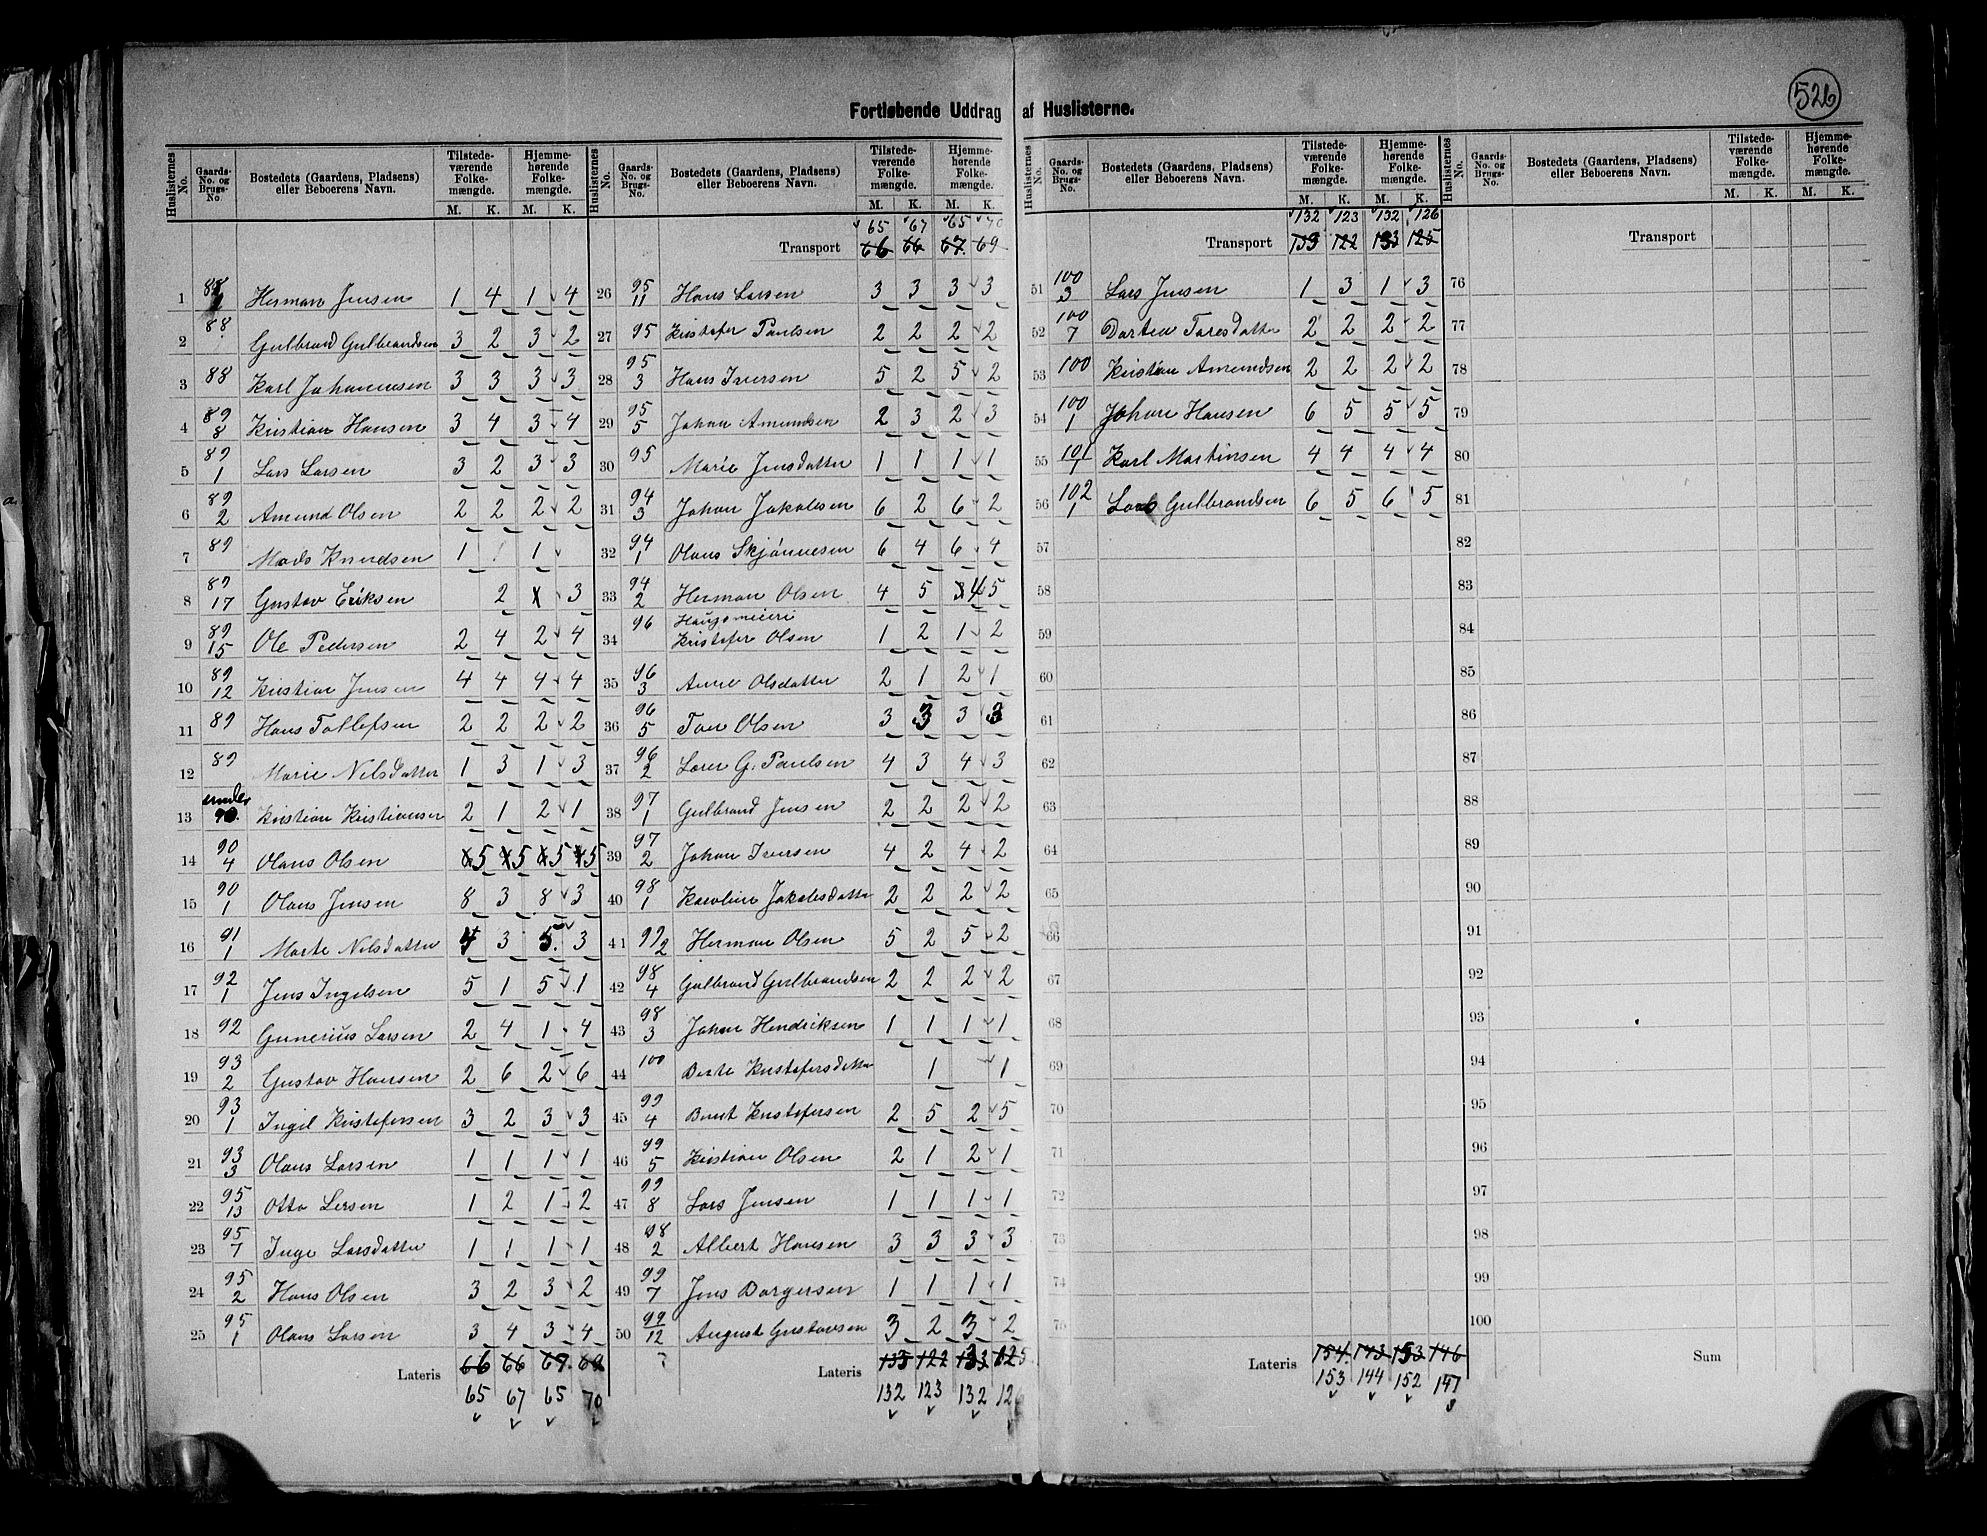 526
Fortløbende Uddrag af Huslisterne.
Huslisternes No. Gaards-No. og Brugs-No. Bostedets (Gaardens, Pladsens) eller Beboerens Navn. Tilstedeværende Folkemængde. M. K. Hjemmehørende Folkemængde. M. K.
1 88 Herman Jensen 1 4 1 4
2 88 Gulbrand Gulbrandsen 3 2 3 2
3 88 Karl Johannesen 3 3 3 3
4 89/8 Kristian Hansen 3 4 3 4
5 89/1 Lars Larsen 3 2 3 3
6 89/2 Amund Olsen 2 2 2 2
7 89 Mads Knudsen 1 1
8 89/17 Gustav Eriksen 2 3
9 89/15 Ole Pedersen 2 4 2 4
10 89/12 Kristian Jensen 4 4 4 4
11 89 Hans Tollefsen 2 2 2 2
12 89 Marie Nilsdatter 1 3 1 3
13 under 90. Kristian Kristiansen 2 1 2 1
14 90/4 Olaus Olsen 5 5 5 5
15 90/1 Olaus Jensen 8 3 8 3
16 91/1 Marte Nilsdatter 4 3 5 3
17 92/1 Jens Ingelsen 5 1 5 1
18 92 Gunerius Larsen 2 4 1 4
19 93/2 Gustav Hansen 2 6 2 6
20 93/1 Ingil Kristofersen 3 2 3 3
21 93/3 Olaus Larsen 1 1 1 1
22 95/13 Otto Larsen 1 2 1 2
23 95/7 Inge Larsdatter 1 1 1 1
24 95/2 Hans Olsen 3 2 3 2
25 95/1 Olaus Larsen 3 4 3 4
Lateris 66 66 67 69
65 67 65 70
Huslisternes No. Gaards-No. og Brugs-No. Bostedets (Gaardens, Pladsens) eller Beboerens Navn. Tilstedeværende Folkemængde. M. K. Hjemmehørende Folkemængde. M. K.
65 67 65 70
Transport 66 66 67 69
26 95/11 Hans Larsen 3 3 3 3
27 95 Kristofer Paulsen 2 2 2 2
28 95/3 Hans Iversen 5 2 5 2
29 95/5 Johan Amundsen 2 3 2 3
30 95 Marie Jensdatter 1 1 1 1
31 94/3 Johan Jakobsen 6 2 6 2
32 94/1 Olaus Skjönnesen 6 4 6 4
33 94/2 Herman Olsen 4 5 4 5
34 96 Haugsmeieri
Kristofer Olsen 1 2 1 2
35 96/3 Anne Olsdatter 2 1 2 1
36 96/5 Tore Olsen 3 3 3 3
37 96/2 Lærer G. Paulsen 4 3 4 3
38 97/1 Gulbrand Jensen 2 2 2 2
39 97/2 Johan Iversen 4 2 4 2
40 98/1 Karoline Jakobsdatter 2 2 2 2
41 99/2 Herman Olsen 5 2 5 2
42 98/4 Gulbrand Gulbrandsen 2 2 2 2
43 98/3 Johan Hendriksen 1 1 1 1
44 100 Berte Kristofersdatter 1 1
45 99/4 Bernt Kristofersen 2 5 2 5
46 99/5 Kristian Olsen 2 1 2 1
47 99/8 Lars Jensen 1 1 1 1
48 98/2 Albert Hansen 3 3 3 3
49 99/7 Jens Borgersen 1 1 1 1
50 99/12 August Gustavsen 3 2 3 2
Lateris 133 122 133 125
132 123 132 126
Huslisternes No. Gaards-No. og Brugs-No. Bostedets (Gaardens, Pladsens) eller Beboerens Navn. Tilstedeværende Folkemængde. M. K. Hjemmehørende Folkemængde. M. K.
132 123 132 126
Transport 133 122 133 125
51 100/3 Lars Jensen 1 3 1 3
52 100/7 Dortea Toresdatter 2 2 2 2
53 100 Kristian Amundsen 2 2 2 2
54 100/1 Johan Hansen 6 5 5 5
55 101/1 Karl Martinsen 4 4 4 4
56 102/1 Lars Gulbrandsen 6 5 6 5
57
58
59
60
61
62
63
64
65
66
67
68
69
70
71
72
73
74
75
Lateris 154 143 153 146
153 144 152 147
Huslisternes No. Gaards-No. og Brugs-No. Bostedets (Gaardens, Pladsens) eller Beboerens Navn. Tilstedeværende Folkemængde. M. K. Hjemmehørende Folkemængde. M. K.
Transport
76
77
78
79
80
81
82
83
84
85
86
87
88
89
90
91
92
93
94
95
96
97
98
99
100
Sum